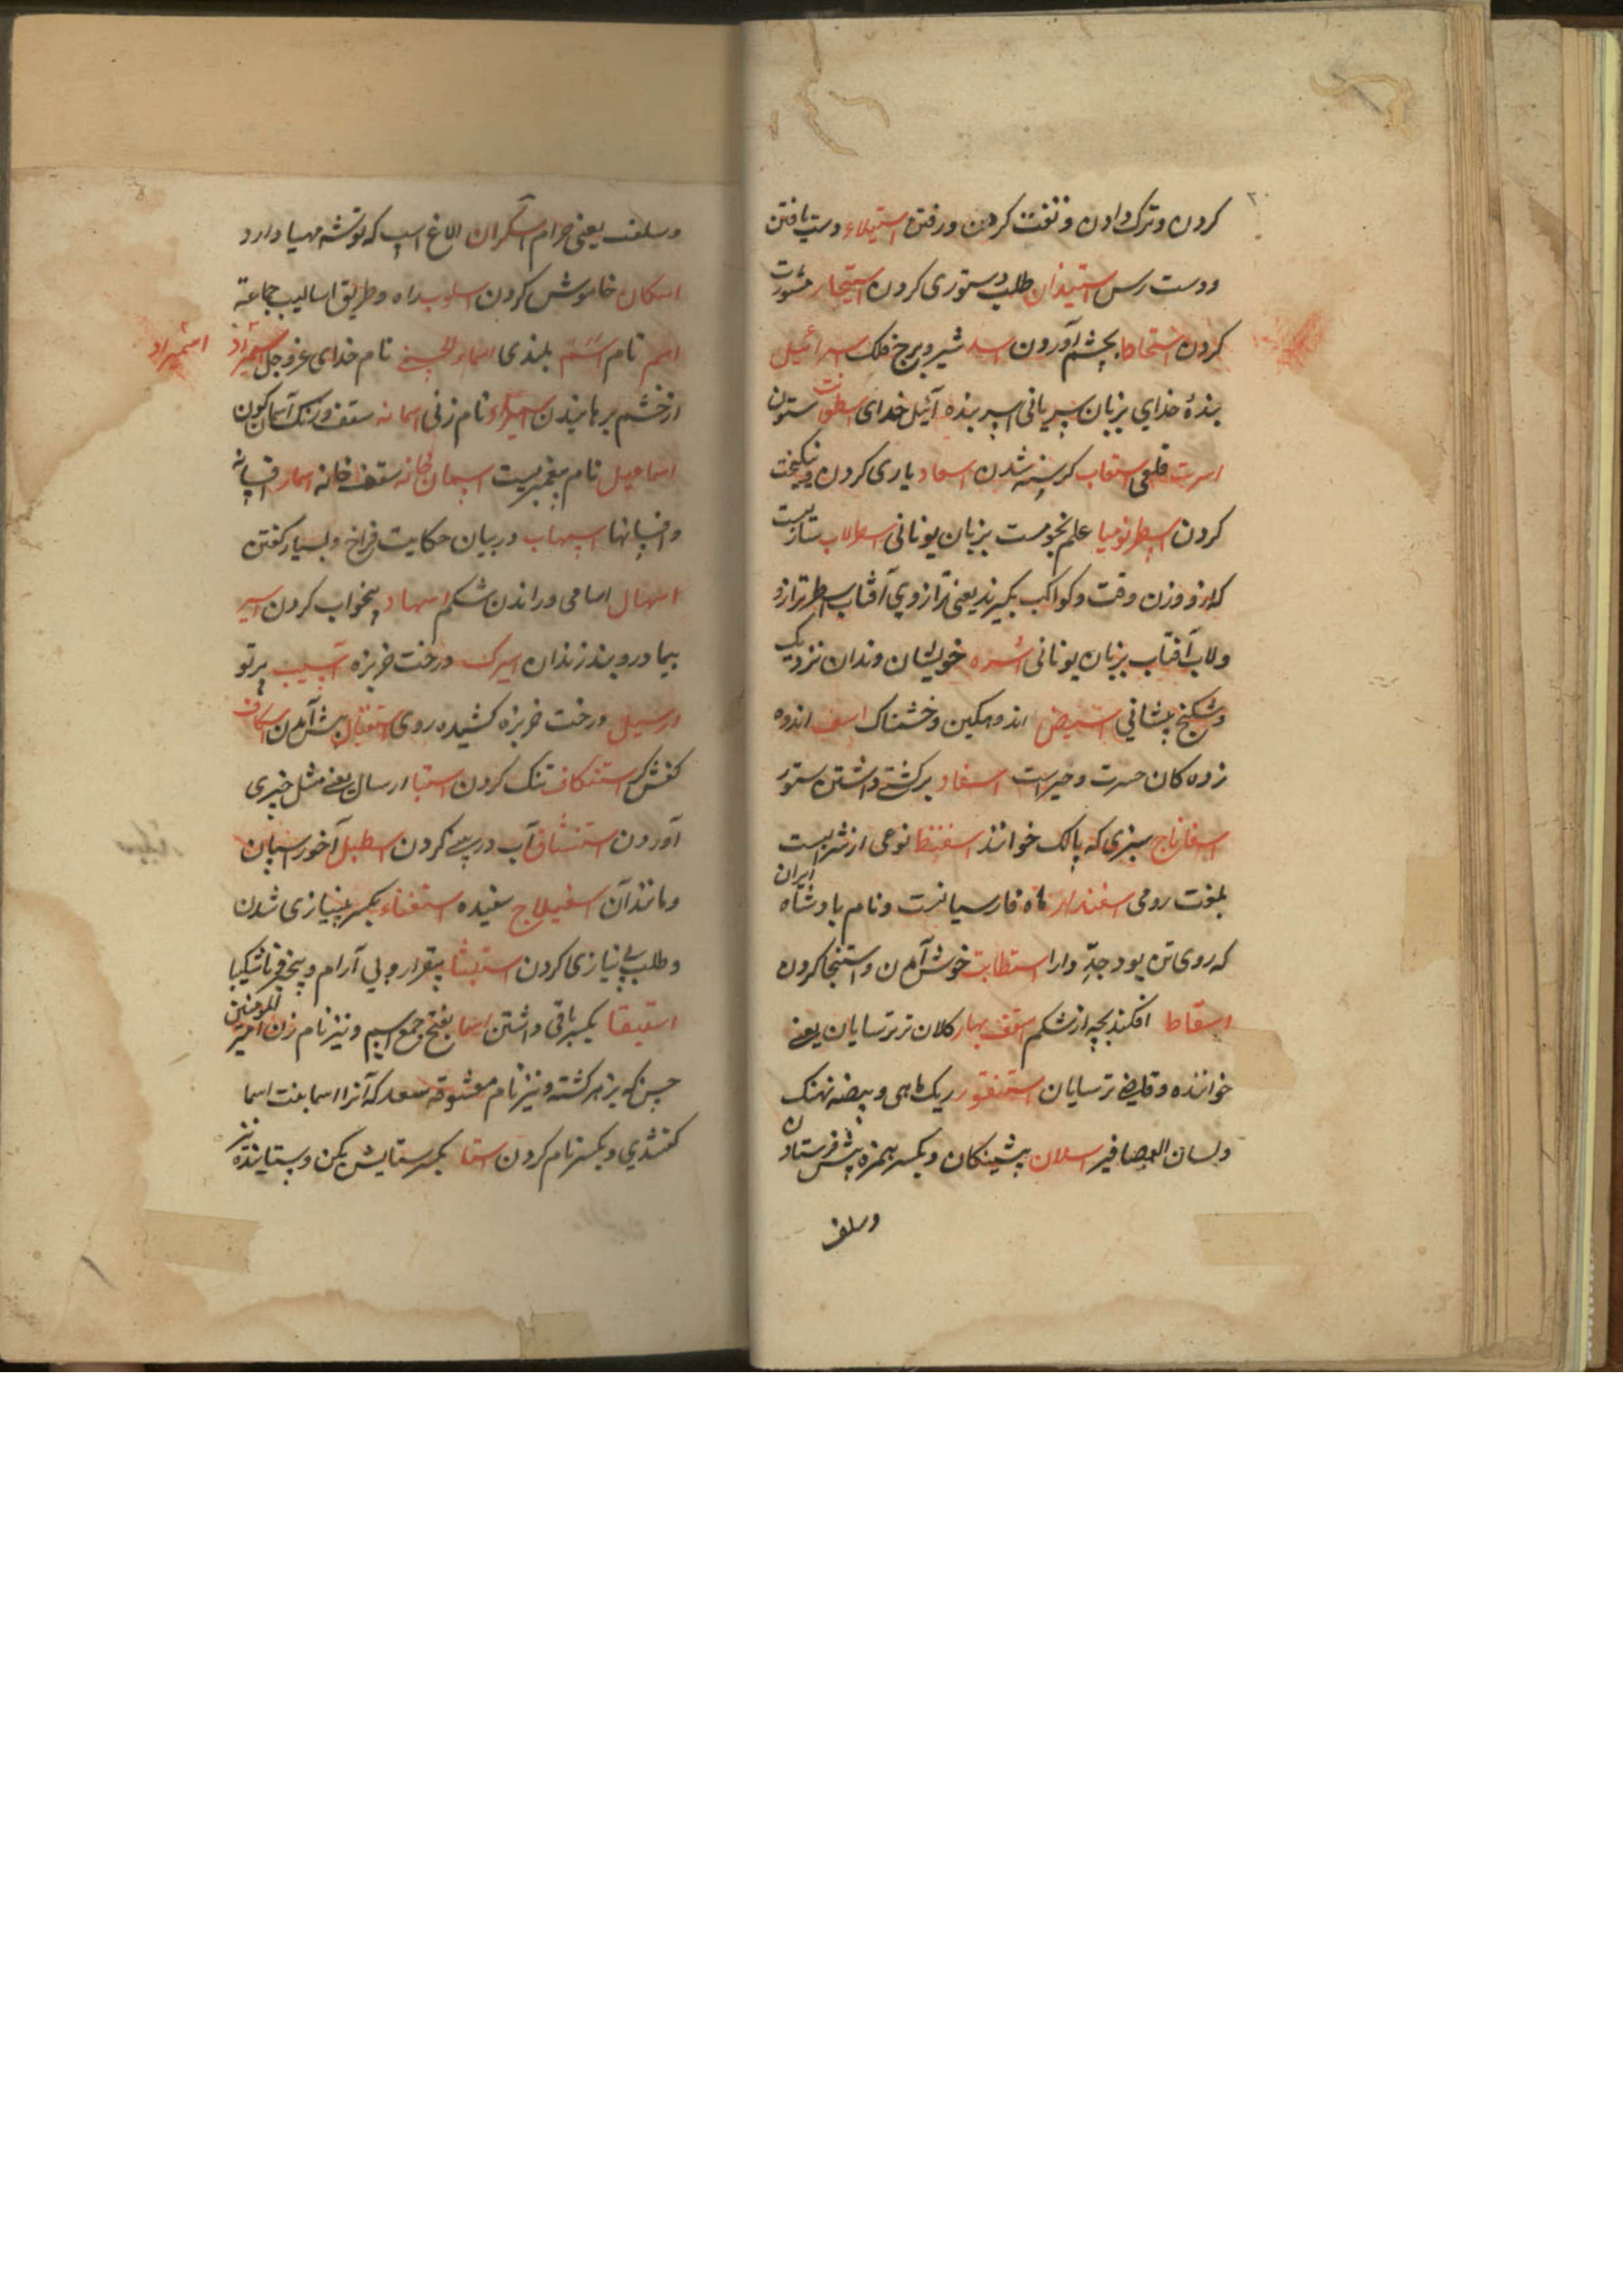 کردن و ترک دادن و نفقت کردن و رفتن استیلاء دست یافتن
و دست رس استیذان طلب دستوری کردن استیجار مشورت
کردن استحاط بخشم آوردن اسد شیر و برج فلک اسرائیل
بندهٔ خدای بزبان سریانی اسر بنده آئیل خدای اسطونت ستون
اسرت قلعی استغاب کرسنه شدن اسعاد یاری کردن و نیکبخت
کردن اسطرنومیا علم نجومست بزبان یونانی اسطرلاب ستاریست
که ازو وزن وقت و کواکب بگیرند یعنی ترازوی آفتاب اسطر ترازو
و لاب آفتاب بزبان یونانی اسره خویشان و ندان نزدیک
و شکنج پیشانی اندوهکین و خشمناک اسف اندوه
زده کان حسرت و حیرات اسفاد برکشتی داشتن ستور
اسفاناج سبزی که پالک خوانند اسفنط نوعی از شرابیست
بلغوت رومی اسفندار ماه فارسیانست و نام پادشاه ایران
که روی تن بود جدّ دارا استطابت خوش آمدن و استنجا کردن
اسقاط افکندن بچه از شکم اسقف بهار کلان تر ترسایان یعنی
خواننده و قاضی ترسایان اسقنقور ریک ماهی و بیضه نهنک
و لسان العصافیر اسلان پیشینکان و بکسر همزه پیش فرستادن
و سلف
و سلف یعنی حرام اسکران الاغ اسپ که توشه مهیا دارد
اسکان خاموش کردن اسلوب راه و طریق اسالیب جماعة
اسم نام اسنم بلندی اسماء الحسنی نام خدای عزوجل اشمیزاد
اشمیزاد
از خشم برمانیدن اسمراء نام زنی اسمانه سقف و رنک آسمان کون
اسماعیل نام پیغمبریست اسمان خانه سقف خانه اسمار افسانه
و افسانها اسهاب در بیان حکایت فراخ و بسیار کفتن
اسهال اسامی و راندن شکم اسهاد بیخواب کردن اسیر
بیمار و بند زندان اسیرک درخت خربزه آسیب پرتو
درسیل درخت خربزه کشیده روی استقبال پیش آمدن اسکاف
کفش کر استنکاف تنک کردن استبا ارسال یعنی مثل خبری
آوردن استنشاق آب در بینی کردن اسطبل آخور اسپان
و مانند آن اسفیلاج سفیده استغناء بکسر بینیازی شدن
و طلب بی نیازی کردن استبشا بیقرار و بی آرام و بیخبر ناشکیبا
استبقا بکسر باقی داشتن اسما بفتح جمع اسم و نیز نام زن امیر المومنین
حسن که بزهر کشته و نیز نام معشوقه سعد که آنرا اسما بنت اسما
کفتندی و بکسر نام کردن استا بکسر ستایش کن و ستاینده نیز